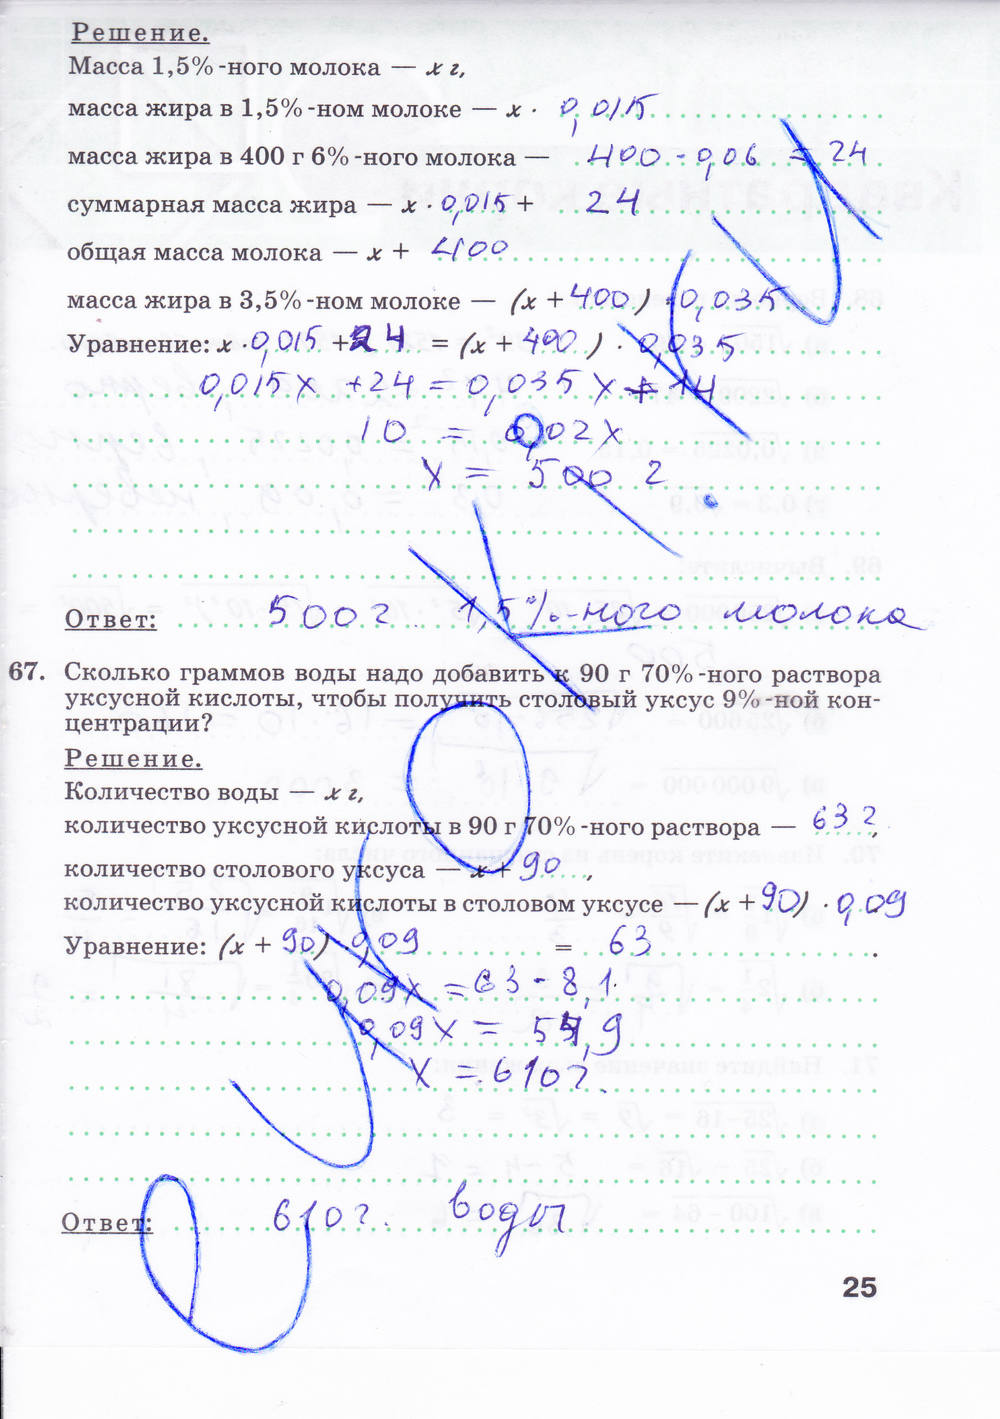 Решение.
Масса 1,5%-ного молока — x г,
масса жира в 1,5%-ном молоке — x · 0,015
масса жира в 400 г 6%-ного молока — 400 · 0,06 = 24
суммарная масса жира — x · 0,015 + 24
общая масса молока — x + 400
масса жира в 3,5%-ном молоке — (x + 400) · 0,035
Уравнение: x · 0,015 + 24 = (x + 400) · 0,035
0,015x + 24 = 0,035x + 14
10 = 0,02x
x = 500 г
Ответ: 500 г. 1,5%-ного молока
67. Сколько граммов воды надо добавить к 90 г 70%-ного раствора
уксусной кислоты, чтобы получить столовый уксус 9%-ной кон-
центрации?
Решение.
Количество воды — x г,
количество уксусной кислоты в 90 г 70%-ного раствора — 63 г,
количество столового уксуса — x + 90,
количество уксусной кислоты в столовом уксусе — (x + 90) · 0,09
Уравнение: (x + 90) · 0,09 = 63.
0,09x = 63 - 8,1
0,09x = 54,9
x = 610 г.
Ответ: 610 г. воды
25